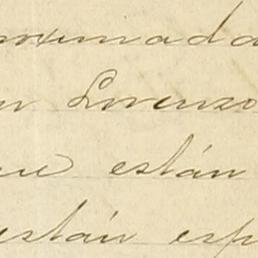 oximada
n Lorenzo
ue están
están esp